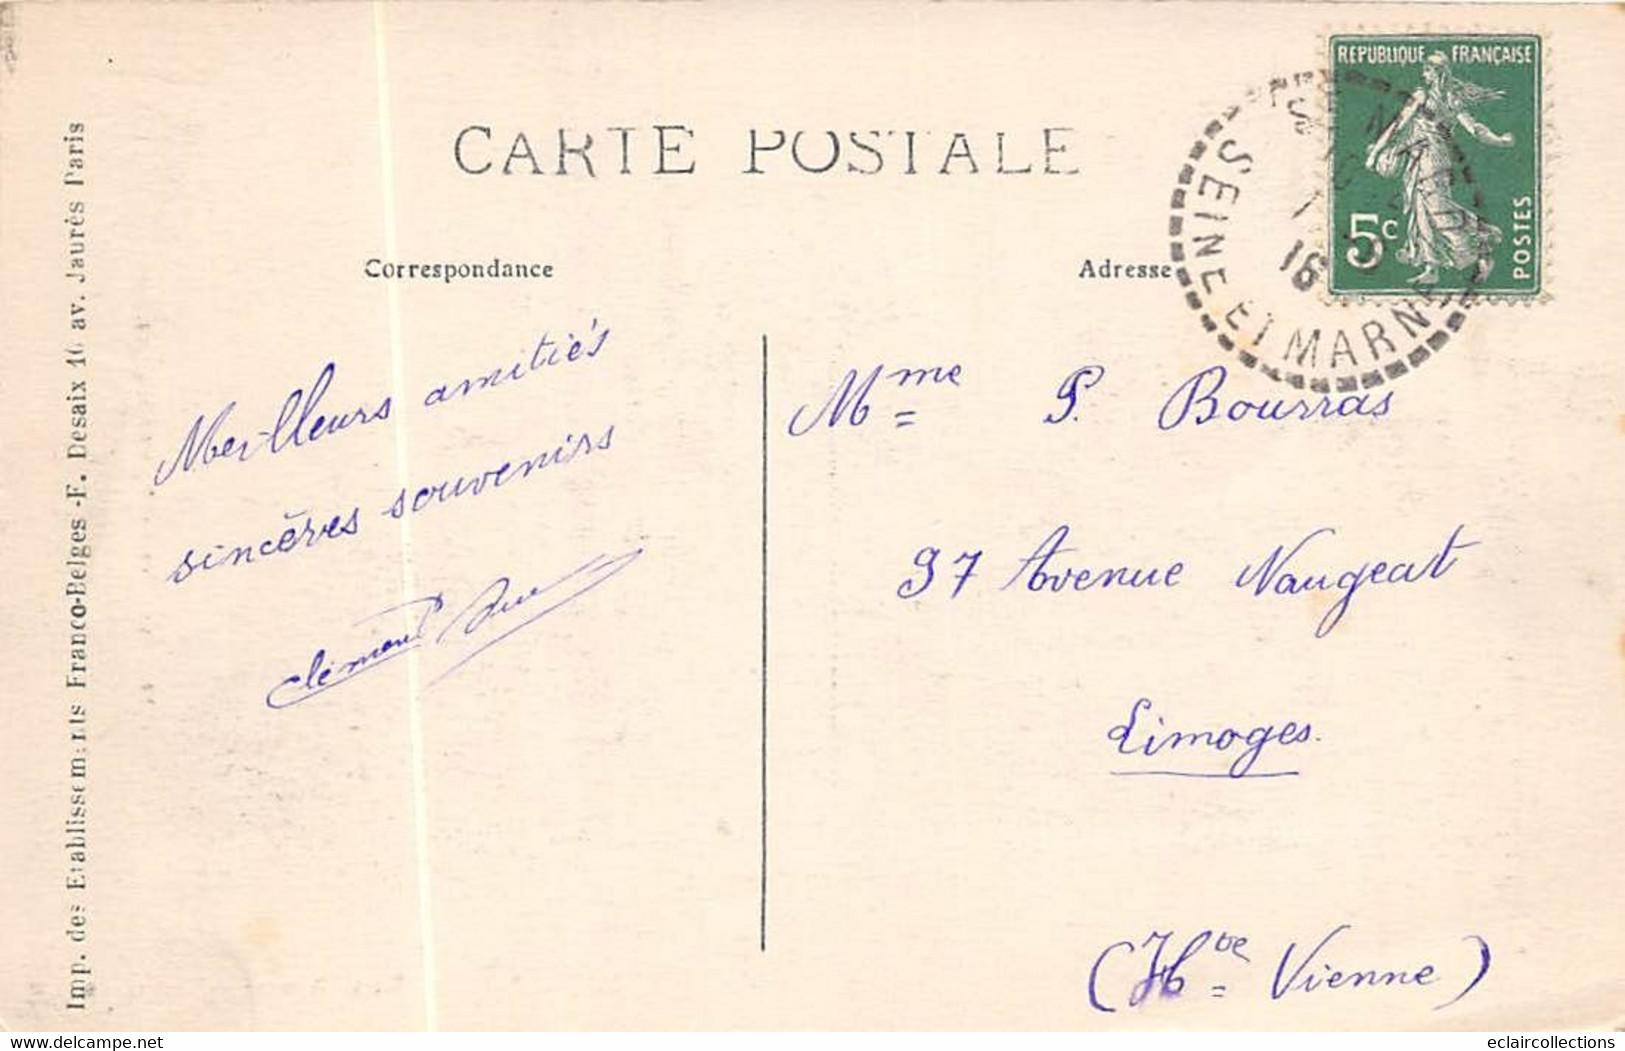 CARTE POSTALE
Correspondance
Adresse
REPUBLIQUE FRANÇAISE
5c
POSTES
SEINE ET MARNE
16
Meilleurs amitiés
sincères souvenirs
Mme P. Bourras
97 Avenue Naugeat
Limoges.
(Hte Vienne)
Imp. des Etablissements Franco-Belges -E. Desaix 16 av. Jaurès Paris
www.delcampe.net
eclaircollections